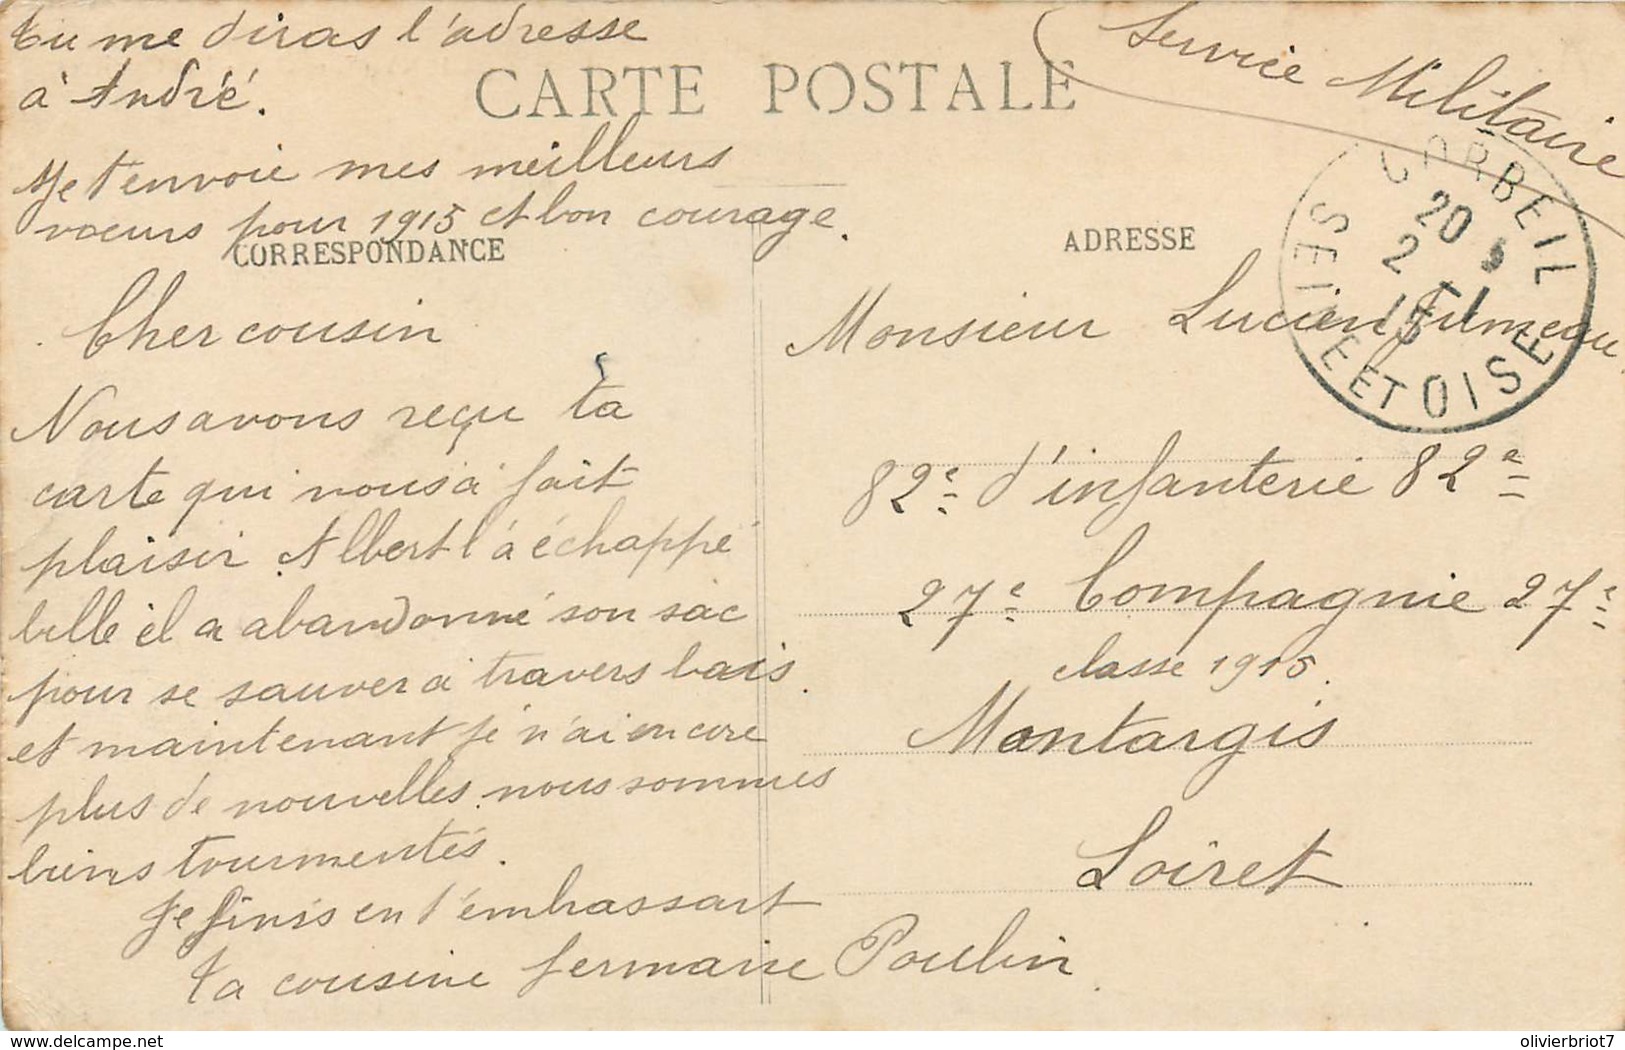 tu me diras l'adresse
à André.
CARTE POSTALE
Service Militaire
Je t'envoie mes meilleurs
vœurs pour 1915 et bon courage.
CORRESPONDANCE
ADRESSE
CORBEIL
20
2 - 1
15
SEINE ET OISE
Cher cousin
Nous avons reçu ta
carte qui nous a fait
plaisir. Albert l'à échappé
belle il a abandonné son sac
pour se sauver à travers bois.
et maintenant je n'ai encore
plus de nouvelles nous sommes
biens tourmentés.
Je finis en t'embrassart
ta cousine Germaine Poulin
Monsieur Lucien
82e d'infanterie 82e
27e Compagnie 27e
classe 1915.
Montargis
Loiret
delcampe.net
olivierbriot7